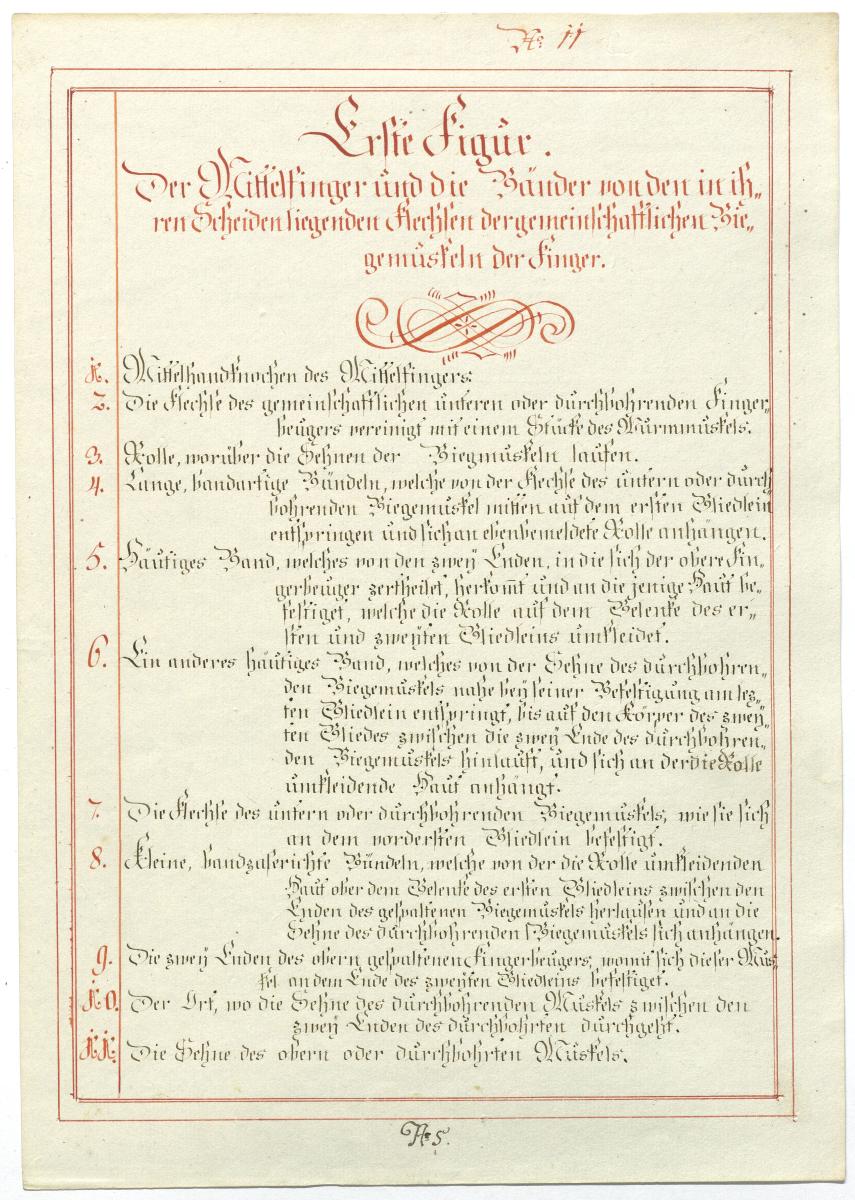 No. 11
Erste Figur.
Der Mittelfinger und die Bänder von den in ih„
ren Scheiden liegenden Flechsen der gemeinschaftlichen Bie„
gemuskeln der Finger.
1. Mittelhandknochen des Mittelfingers.
2. Die Flechse des gemeinschaftlichen unteren oder durchbohrenden Finger„
beugers vereinigt mit einem Stücke des Wurmmuskels.
3. Rolle, worüber die Sehnen der Biegmuskeln laufen.
4. Lange, bandartige Bündeln, welche von der Flechse des untern oder durch
bohrenden Biegemuskel mitten auf dem ersten Gliedlein
entspringen und sich an ebenbemeldete Rolle anhängen.
5. Häutiges Band, welches von den zwey Enden, in die sich der obere Fin„
gerbeuger zertheilet, herkom̅t und an die jenige Haut be„
festiget, welche die Rolle auf dem Gelenke des er„
sten und zweyten Gliedleins umkleidet.
6. Ein anderes häutiges Band, welches von der Sehne des durchbohren„
den Biegemuskels nahe bey seiner Befestigung am lez„
ten Gliedlein entspringt, bis auf den Körper des zwey„
ten Gliedes zwischen die zwey Ende des durchbohren„
den Biegemuskels hinlauft, und sich an der die Rolle
umkleidende Haut anhängt.
7. Die Flechse des untern oder durchbohrenden Biegemuskels, wie sie sich
an dem vordersten Gliedlein befestigt.
8. Kleine, bandzaserichte Bündeln, welche von der die Rolle umkleidenden
Haut ober dem Gelenke des ersten Gliedleins zwischen den
Enden des gespaltenen Biegemuskels herlaufen und an die
Sehne des durchbohrenden Biegemuskels sich anhängen.
9. Die zwey Enden des obern gespaltenen Fingerbeugers, womit sich dieser Mus„
kel an dem Ende des zweyten Gliedleins befestiget.
10. Der Ort, wo die Sehne des durchbohrenden Muskels zwischen den
zwey Enden des durchbohrten durchgeht.
11. Die Sehne des obern oder durchbohrten Muskels.
No 5.